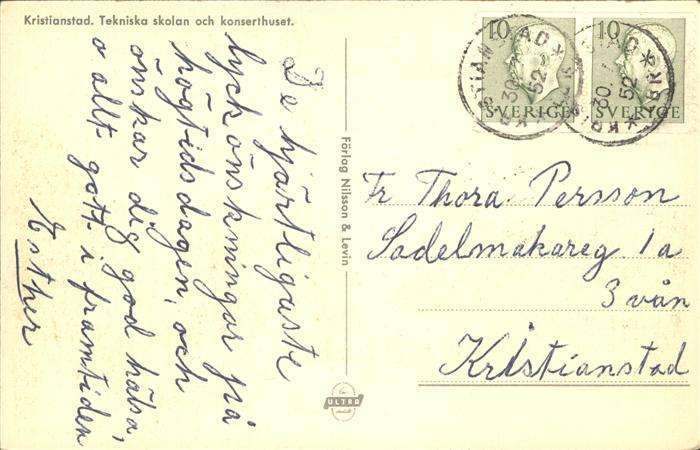 Kristianstad. Tekniska skolan och konserthuset.
De hjärtligaste
lyckönskningar på
högtidsdagen, och
önskar dig god hälsa,
o allt gott i framtiden
Esther
Förlag Nilsson & Levin
ULTRA
10
SVERIGE
10
SVERIGE
KRISTIANSTAD
30
52
KRISTIANSTAD
30
52
Fr Thora Persson
Sadelmakareg 1a
3 vån
Kristianstad